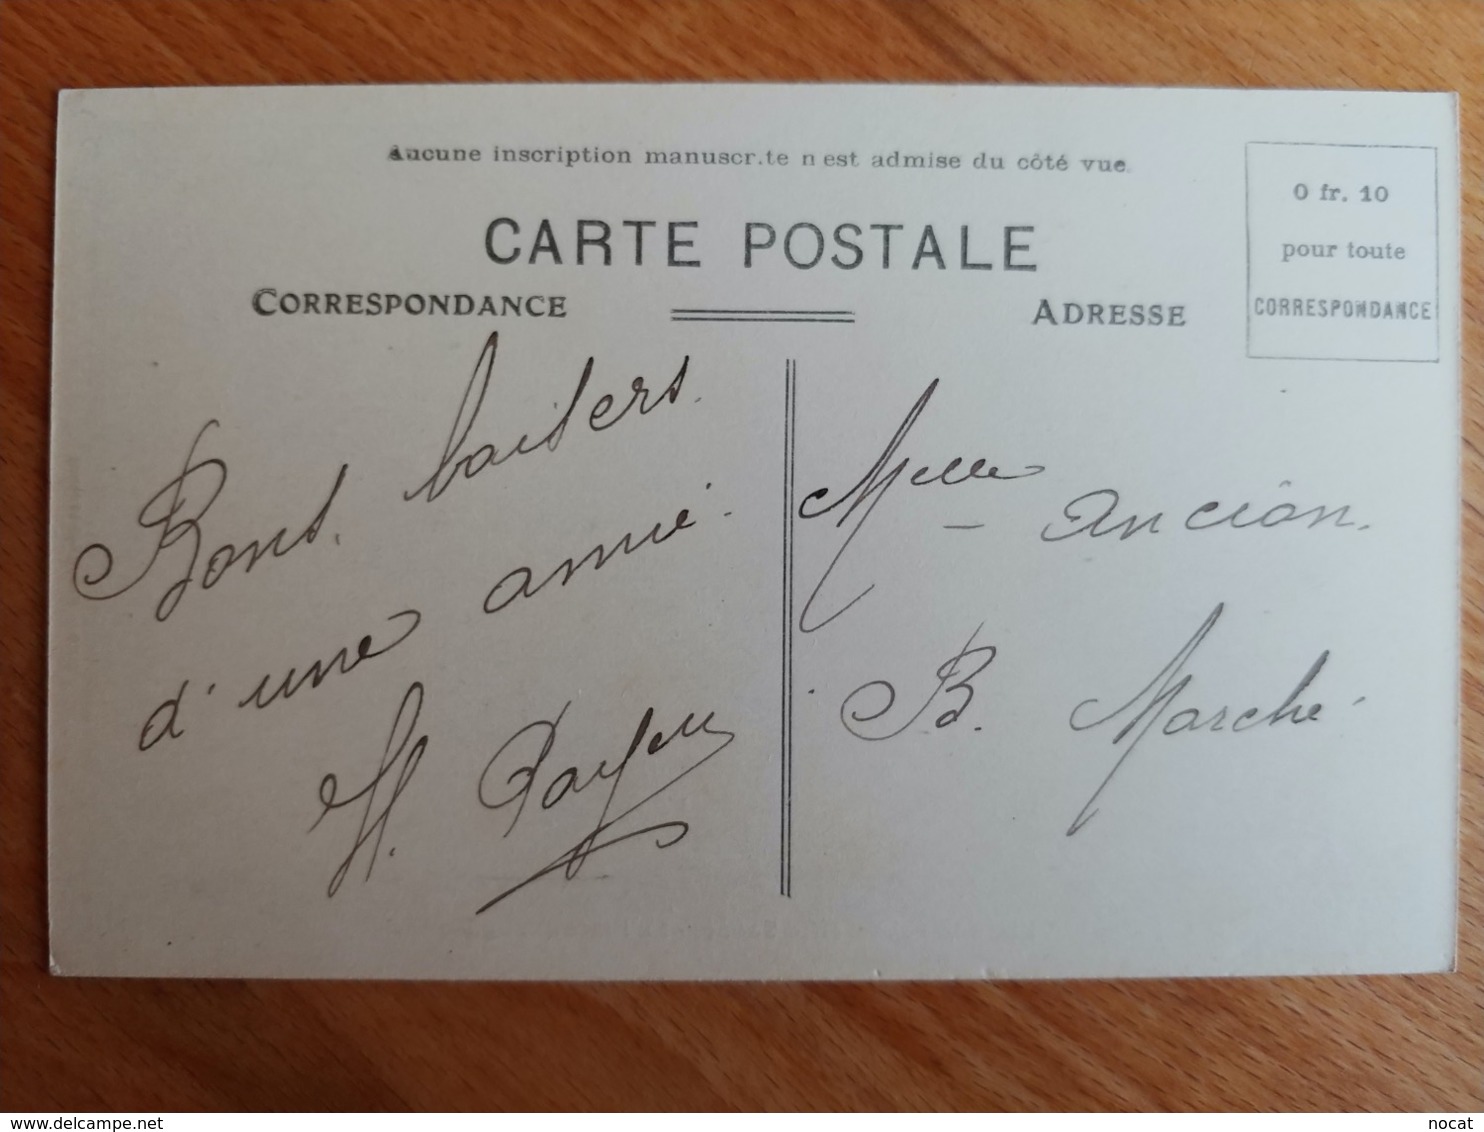 Aucune inscription manuscr.te n est admise du côté vue.
CARTE POSTALE
CORRESPONDANCE
ADRESSE
0 fr. 10
pour toute
CORRESPONDANCE
Bons baisers.
d'une amie.
H. Payen
Melle Ancian.
B. Marché
delcampe.net
nocat